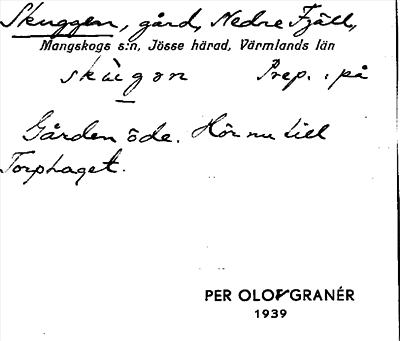 Skuggen, gård, Nedre Fjäll,
Mangskogs s:n, Jösse härad, Värmlands län
skùgon Prep. : på
Gården öde. Hör nu till
Torphaget.
PER OLOF GRANÉR
1939